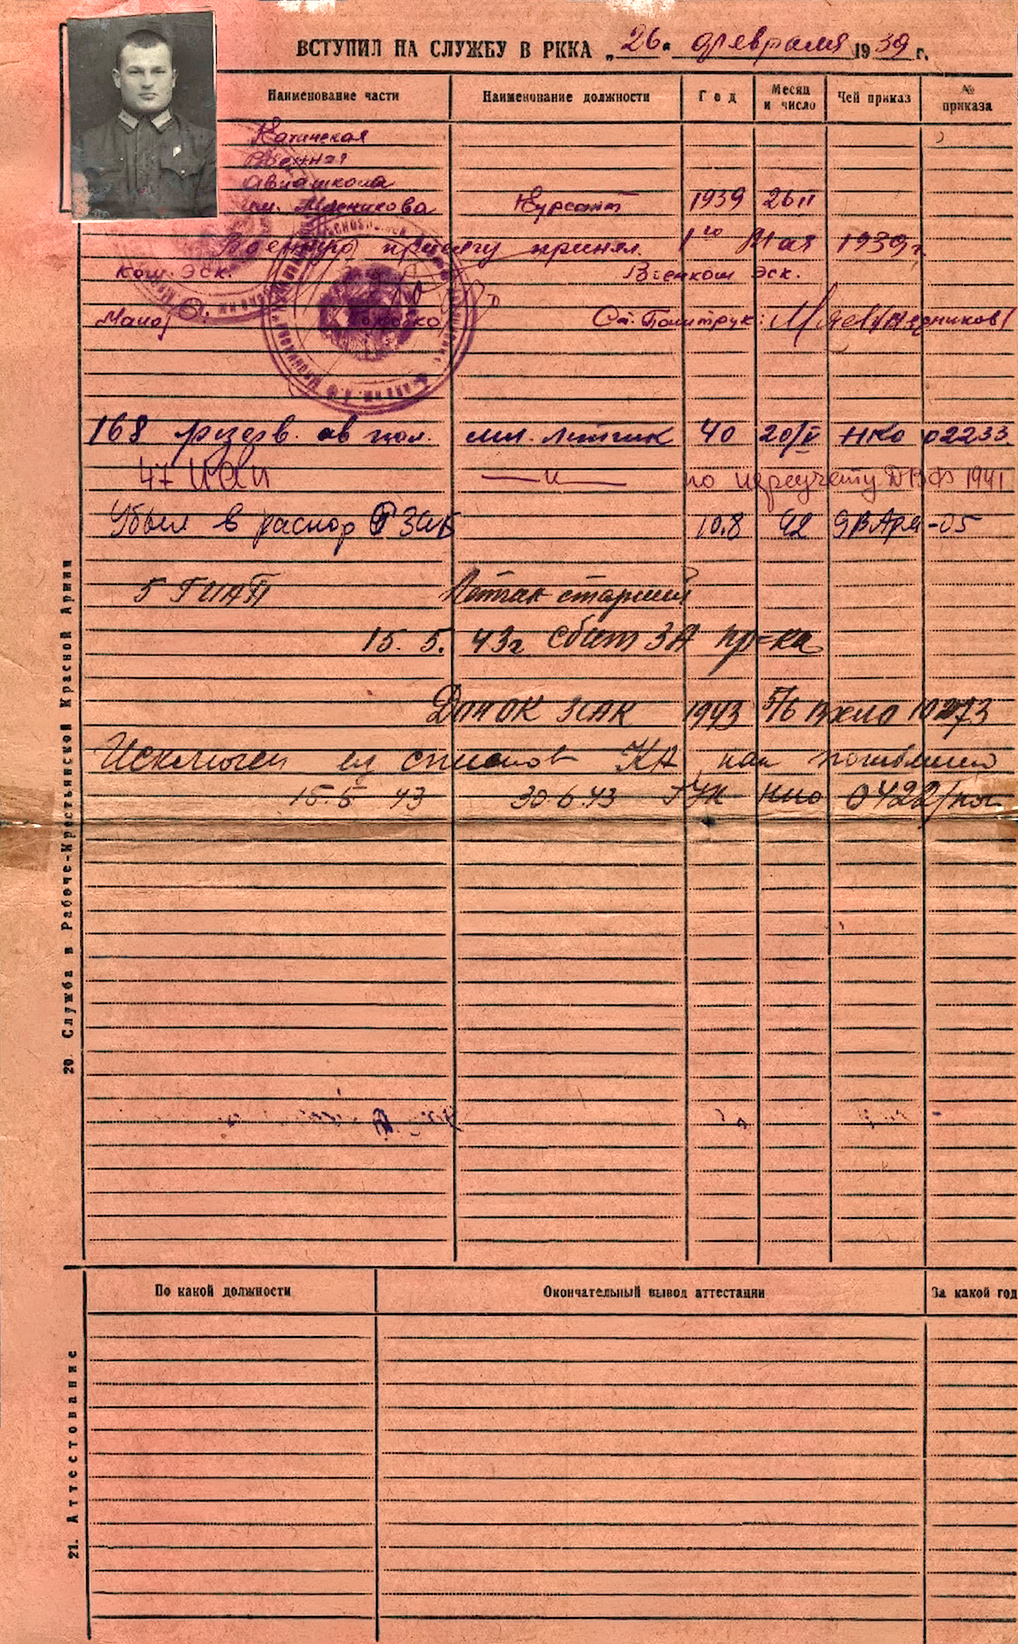 ВСТУПИЛ НА СЛУЖБУ В РККА „26“ февраля 1939 г.
Наименование части Наименование должности Год Месяц и число Чей приказ № приказа
Качинская
Военная
авиашкола
им. Мясникова Курсант 1939 26 II
Военную присягу принял 1го Мая 1939 г.
Ком. эск. Военком эск.
Майор Ст. Политрук:
168 резерв. ав пол. мл. летчик 40 20/V НКО 02233
47 ИАП — и — по переучету 1941
Убыл в распор ЗАБ 10.8 42 9ВАРМ-05
5 ГИАП Летчик старший
15. 5. 43г сбит ЗА пр-ка
1943 5/6
Исключен из списков КА как погибший
15.5 43 30.6.43 ГУК НКО 0422/пог
20. Служба в Рабоче-Крестьянской Красной Армии
По какой должности Окончательный вывод аттестации За какой год
21. Аттестование